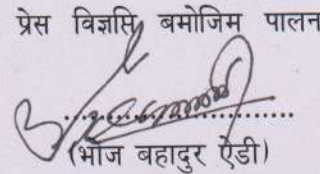 प्रेस विज्ञप्ति बमोजिम पालन
(भोज बहादुर ऐडी)